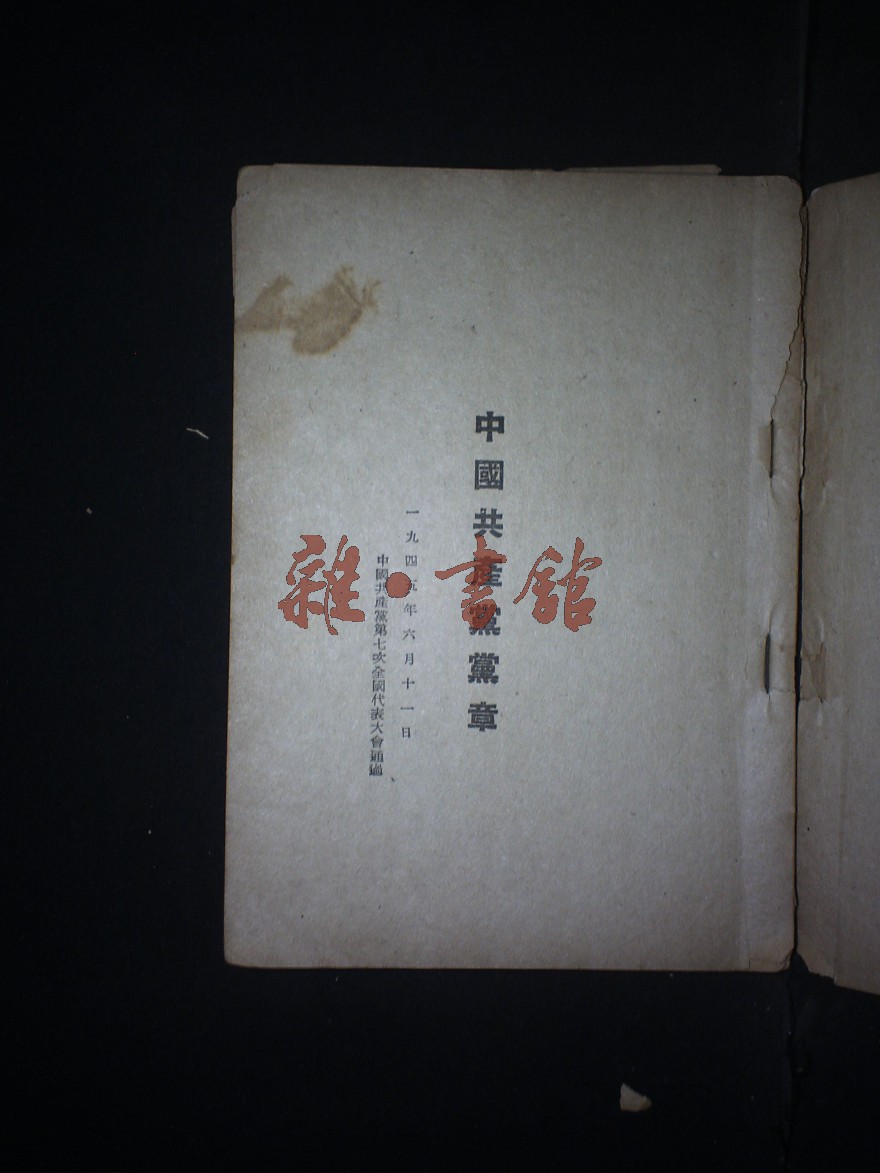 中國共產黨黨章
一九四五年六月十一日
中國共產黨第七次全國代表大會通過
雜·書館